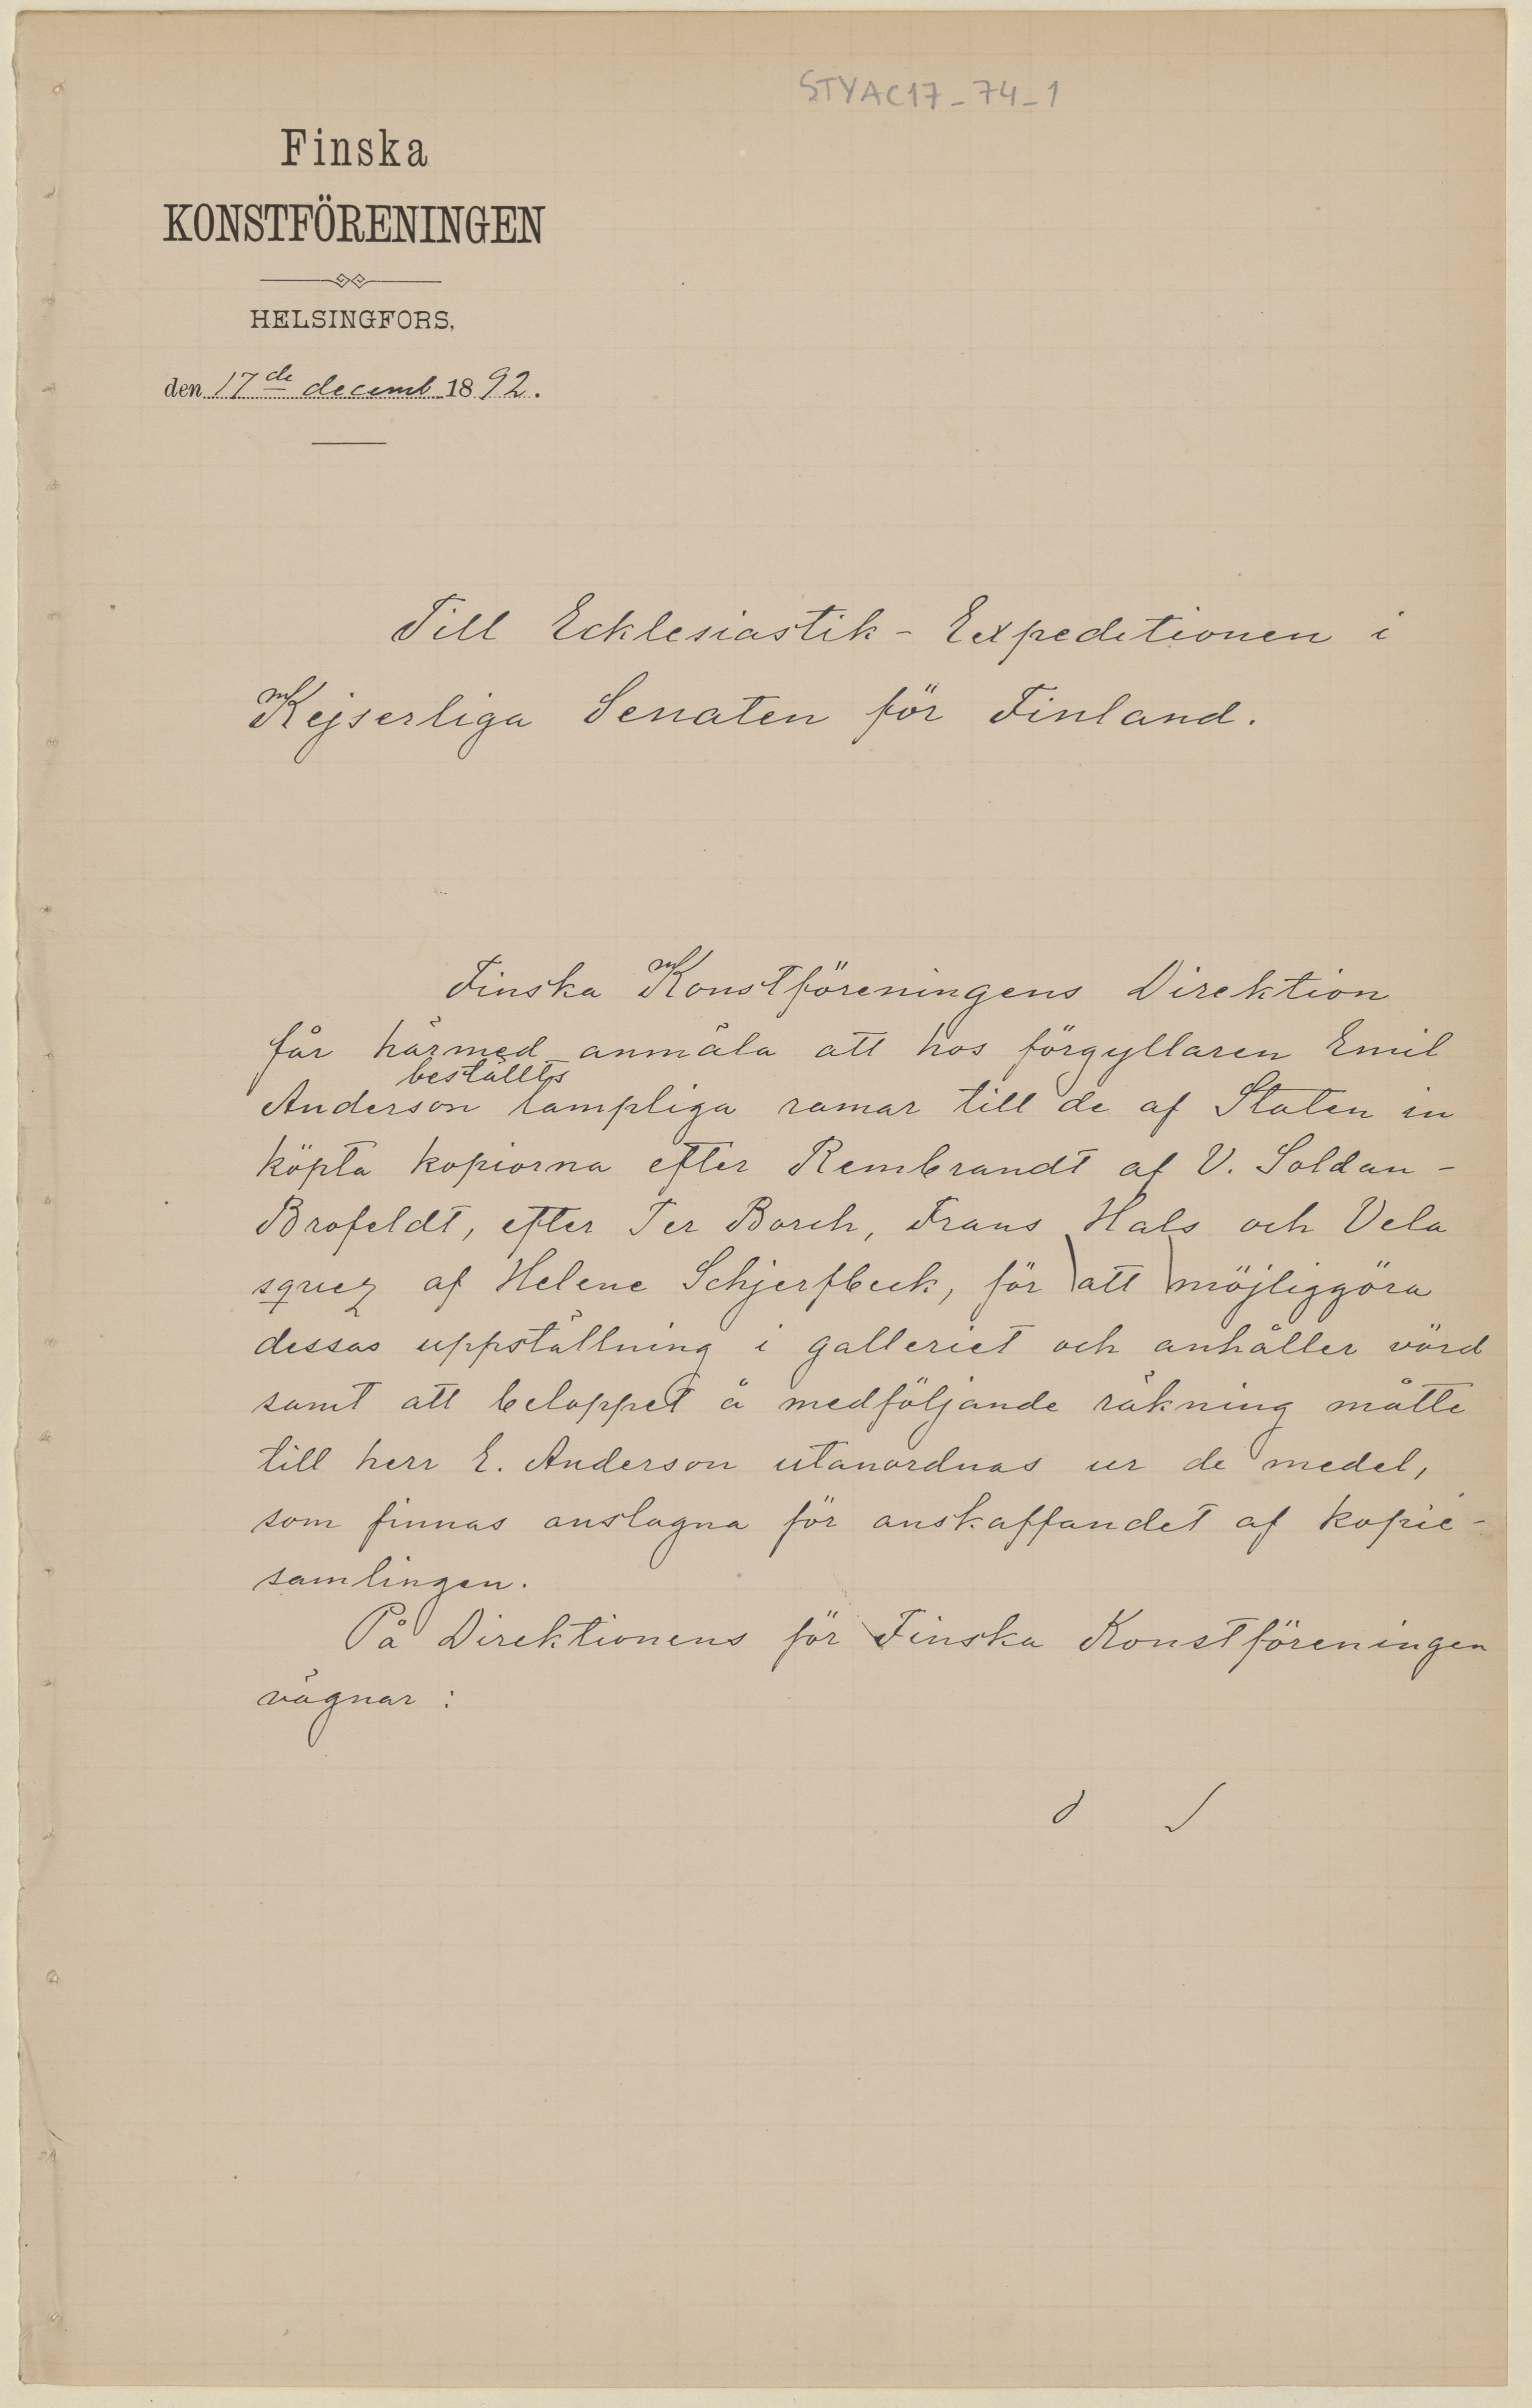 STYAC17-74-1
Finska
KONSTFÖRENINGEN
HELSINGFORS,
den 17de decemb 1892.
Till Ecklesiastik-Expeditionen i
Kejserliga Senaten för Finland.
Finska Konstföreningens Direktion
får härmed anmäla att hos förgyllaren Emil
beställts
Anderson lämpliga ramar till de af Staten in
köpta kopiorna efter Rembrandt af V. Soldan-
Brofeldt, efter Ter Borch, Frans Hals och Vela
squez af Helene Schjerfbeck, för att möjliggöra
dessas uppställning i galleriet och anhåller vörd
samt att beloppet å medföljande räkning måtte
till herr E. Anderson utanordnas ur de medel,
som finnas anslagna för anskaffandet af kopie-
samlingen.
På Direktionens för Finska Konstföreningen
vägnar: